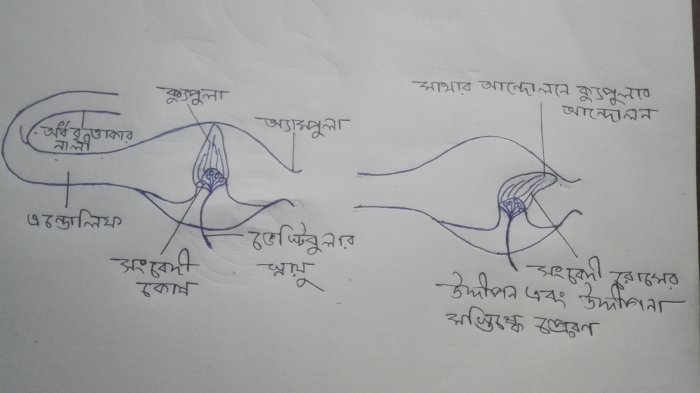 ক্যুপুলা
অ্যাম্পুলা
অর্ধবৃত্তাকার
নালী
এন্ডোলিম্ফ
সংবেদী
কোষ
ভেস্টিবুলার
স্নায়ু
মাথার আন্দোলনে ক্যুপুলার
আন্দোলন
সংবেদী রোমের
উদ্দীপন এবং উদ্দীপনা
মস্তিষ্কে প্রেরণ